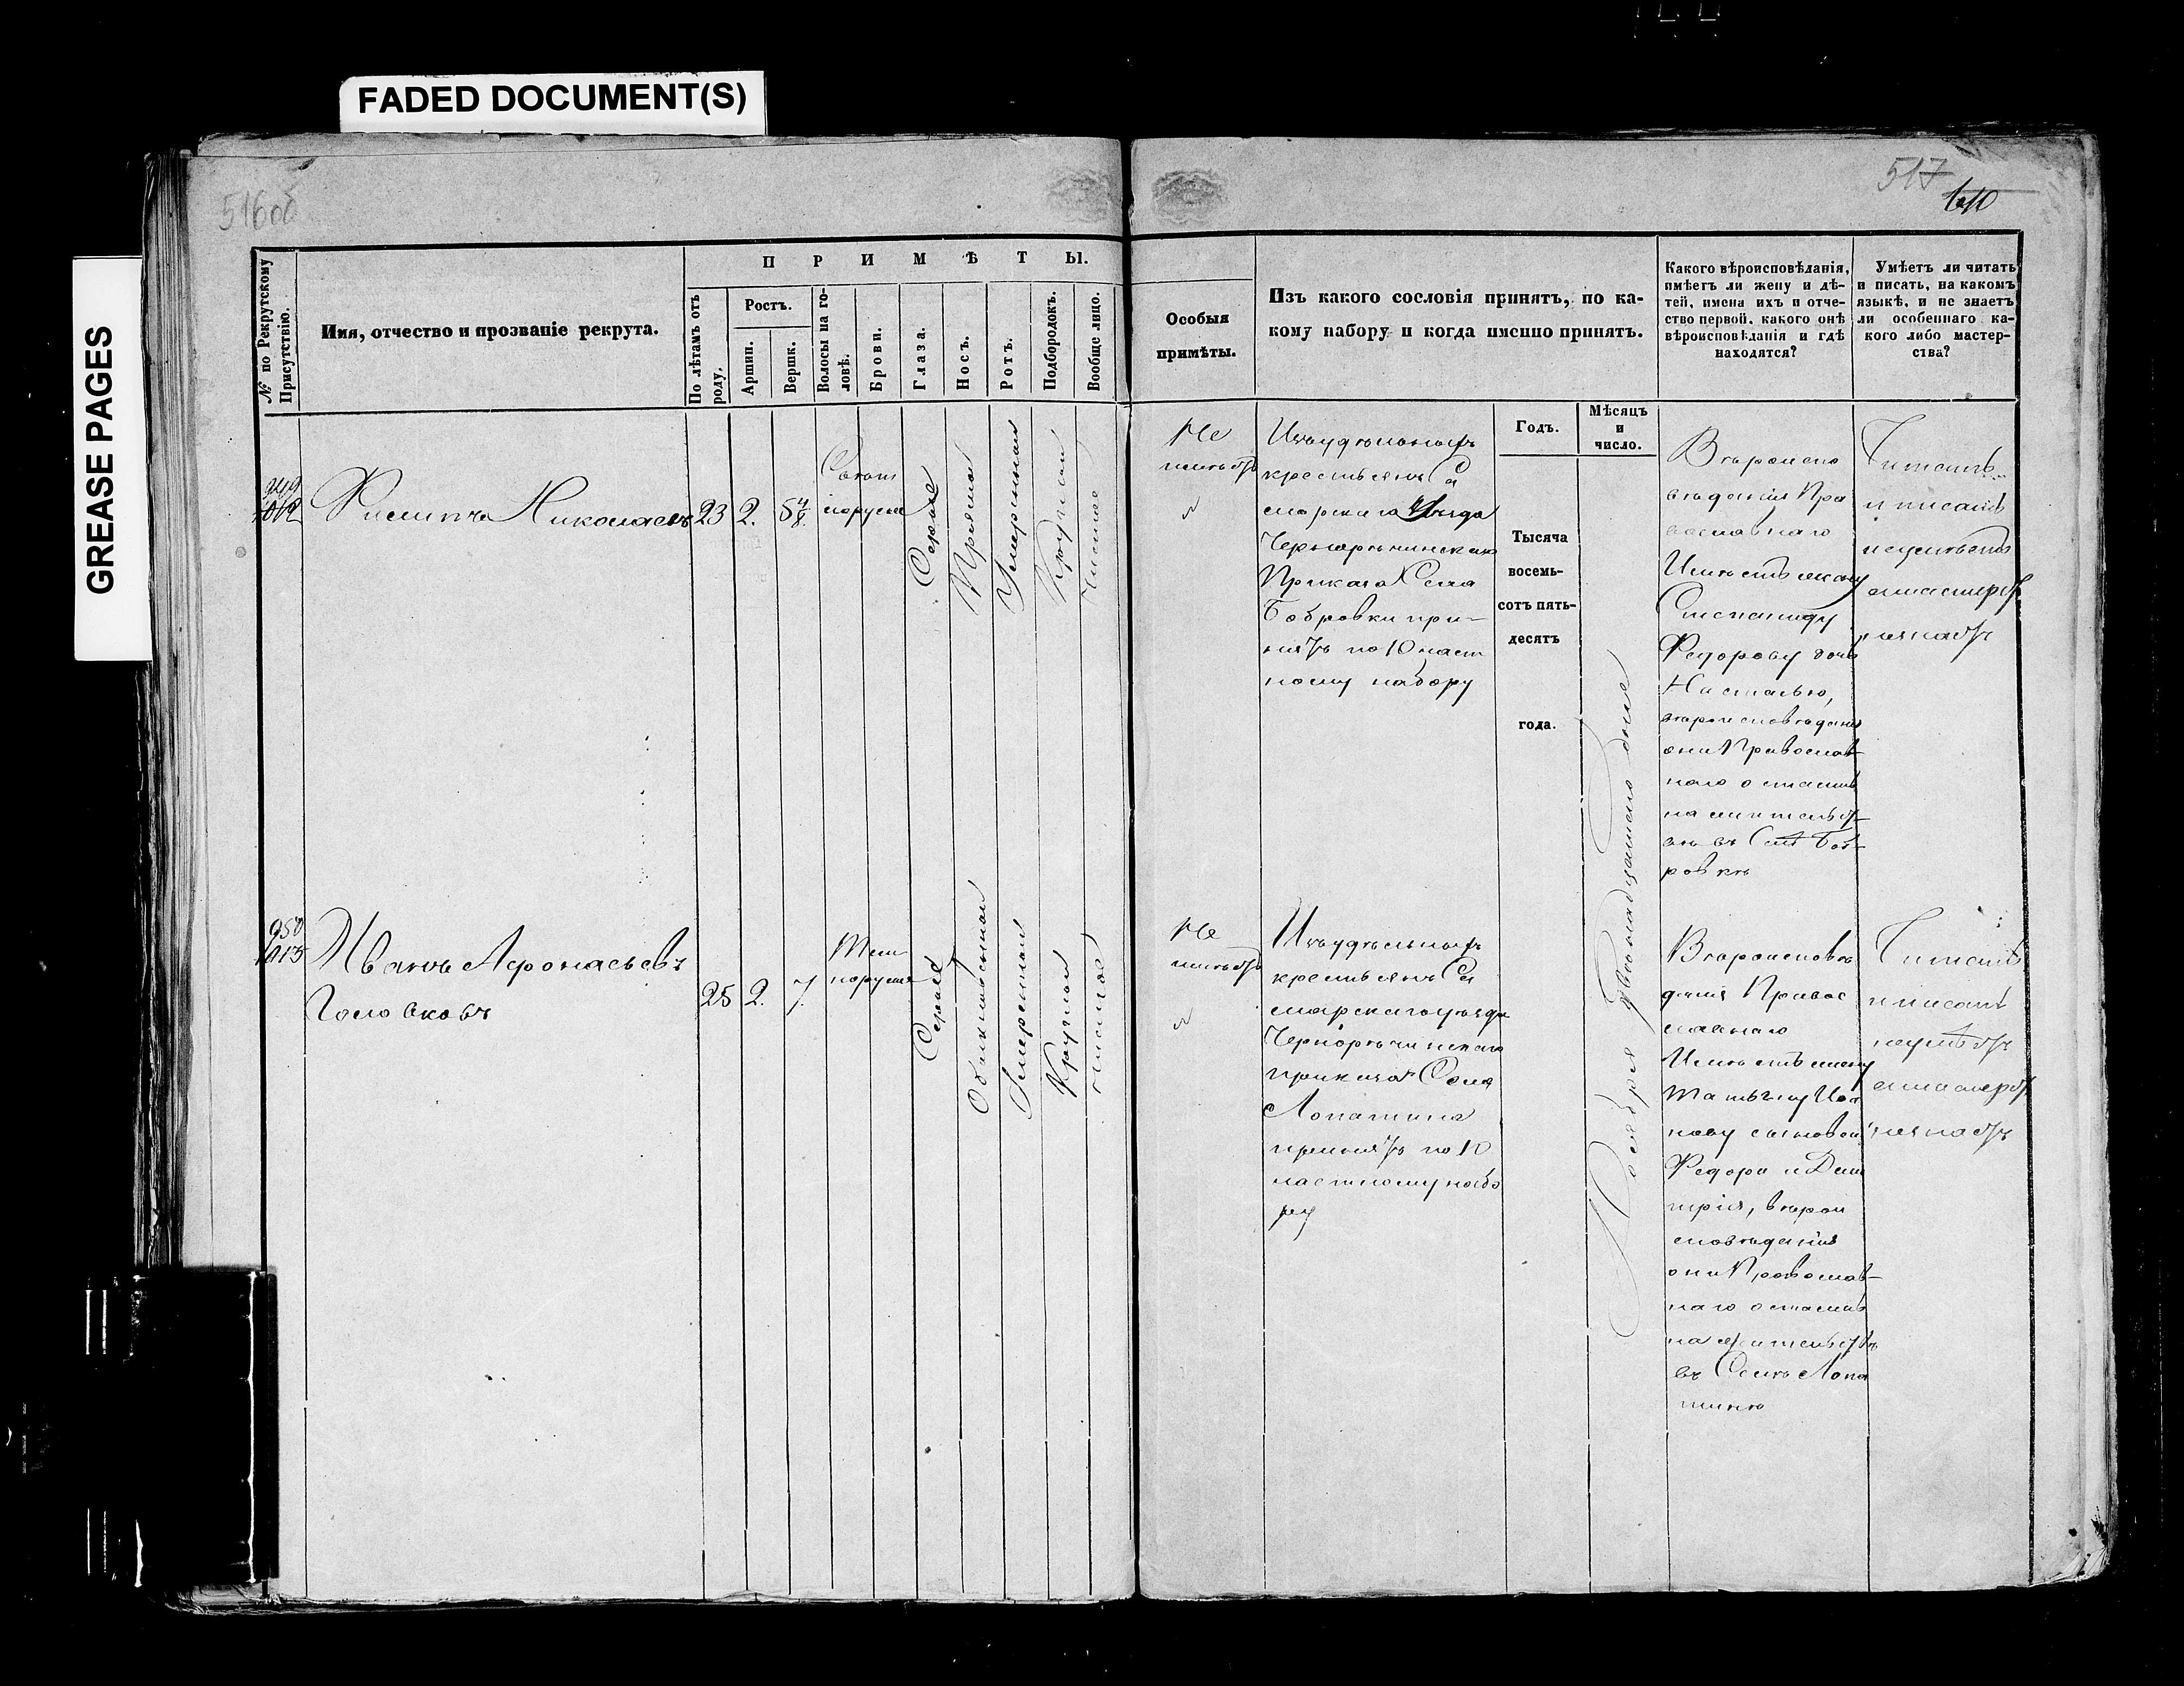 FADED DOCUMENT(S)
GREASE PAGES
516об
517
П Р И М Ѣ Т Ы.
№ по Рекрутскому
Присутствію.
Имя, отчество и прозваніе рекрута.
По лѣтамъ отъ
роду.
Ростъ.
Аршин.
Вершк.
Волосы на го-
ловѣ.
Брови.
Глаза.
Носъ.
Ротъ.
Подбородокъ.
Вообще лицо.
Особыя
примѣты.
Изъ какого сословія принятъ, по ка-
кому набору и когда именно принятъ.
Какого вѣроисповѣданія,
имѣетъ ли жену и дѣ-
тей, имена ихъ и отче-
ство первой, какого онѣ
вѣроисповѣданія и гдѣ
находятся?
Умѣетъ ли читать
и писать, на какомъ
языкѣ, и не знаетъ
ли особеннаго ка-
кого либо мастер-
ства?
Годъ.
Мѣсяцъ
и
число.
Тысяча
восемь-
сотъ пять-
десятъ
года.
Ноября двенадцатого дня
949
1012
Филипъ Николаевъ
23
2.
5 4/8.
Светло
русые
Серые
Прямой
Умеренный
Круглый
Чистое
Не
имѣетъ
Изъ удѣльныхъ
крестьянъ Са
марскаго Уѣзда
Чернорѣчинскаго
Приказа Села
Бобровки при-
нятъ по 10 част
ному набору
Вѣроиспо
вѣданія Пра
вославнаго
Имѣетъ жену
Степаниду
Федорову дочь
Наталью,
вѣроисповѣданія
они Православ-
наго остались
на жительст-
вѣ въ Селѣ Боб-
ровкѣ
Читать
и писать
неумѣетъ
и мастерст
незнаетъ
950
1013
Иванъ Афонасьевъ
Головковъ
25
2.
7.
Темно
русые
Серые
Обыкновенной
Умеренной
Круглой
чистое
Не
имѣетъ
Изъ удѣльныхъ
крестьянъ Са
марскаго уѣзда
Чернорѣчинскаго
приказа Села
Лопатина
принятъ по 10
частному набо
ру
Вѣроисповѣ
данія Правос
лавнаго
Имѣетъ жену
Татьяну Ива
нову сыновей
Федора и Дми
трія, вѣрои
сповѣданія
они Православ-
наго остались
на жительствѣ
въ Селѣ Лопа
тинѣ
Читать
и писать
неумѣетъ
и мастерст
незнаетъ